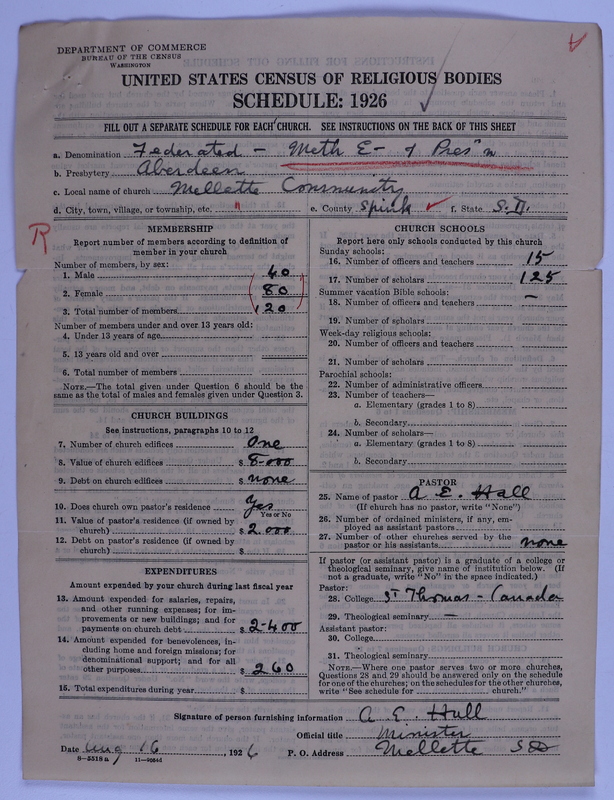 DEPARTMENT OF COMMERCE
BUREAU OF THE CENSUS
WASHINGTON
UNITED STATES CENSUS OF RELIGIOUS BODIES
SCHEDULE: 1926
FILL OUT A SEPARATE SCHEDULE FOR EACH CHURCH. SEE INSTRUCTIONS ON THE BACK OF THIS SHEET
a. Denomination Federated - Meth E- & Pres'n
b. Presbytery Aberdeen
c. Local name of church Mellette Community
d. City, town, village, or township, etc. " e. County Spink f. State S.D.
R
MEMBERSHIP
Report number of members according to definition of
member in your church
Number of members, by sex:
1. Male 40
2. Female 80
3. Total number of members 120
Number of members under and over 13 years old:
4. Under 13 years of age
5. 13 years old and over
6. Total number of members
NOTE.—The total given under Question 6 should be the
same as the total of males and females given under Question 3.
CHURCH BUILDINGS
See instructions, paragraphs 10 to 12
7. Number of church edifices One
8. Value of church edifices $ 8000
9. Debt on church edifices $ none
10. Does church own pastor's residence Yes
Yes or No
11. Value of pastor's residence (if owned by
church) $ 2000
12. Debt on pastor's residence (if owned by
church) $
EXPENDITURES
Amount expended by your church during last fiscal year
13. Amount expended for salaries, repairs,
and other running expenses; for im-
provements or new buildings; and for
payments on church debt $ 2400
14. Amount expended for benevolences, in-
cluding home and foreign missions; for
denominational support; and for all
other purposes $ 260
15. Total expenditures during year $
CHURCH SCHOOLS
Report here only schools conducted by this church
Sunday schools:
16. Number of officers and teachers 15
17. Number of scholars 125
Summer vacation Bible schools:
18. Number of officers and teachers —
19. Number of scholars
Week-day religious schools:
20. Number of officers and teachers
21. Number of scholars
Parochial schools:
22. Number of administrative officers
23. Number of teachers—
a. Elementary (grades 1 to 8)
b. Secondary
24. Number of scholars—
a. Elementary (grades 1 to 8)
b. Secondary
PASTOR
25. Name of pastor A E. Hall
(If church has no pastor, write "None")
26. Number of ordained ministers, if any, em-
ployed as assistant pastors
27. Number of other churches served by the
pastor or his assistants none
If pastor (or assistant pastor) is a graduate of a college or
theological seminary, give name of institution below. (If
not a graduate, write "No" in the space indicated.)
Pastor:
28. College St Thomas - Canada
29. Theological seminary —
Assistant pastor:
30. College
31. Theological seminary
NOTE.—Where one pastor serves two or more churches,
Questions 28 and 29 should be answered only on the schedule
for one of the churches; on the schedules for the other churches,
write "See schedule for church."
Signature of person furnishing information A E. Hall
Official title Minister
Date Aug 16, 1926 P. O. Address Mellette SD
8-5518a 11-9064d